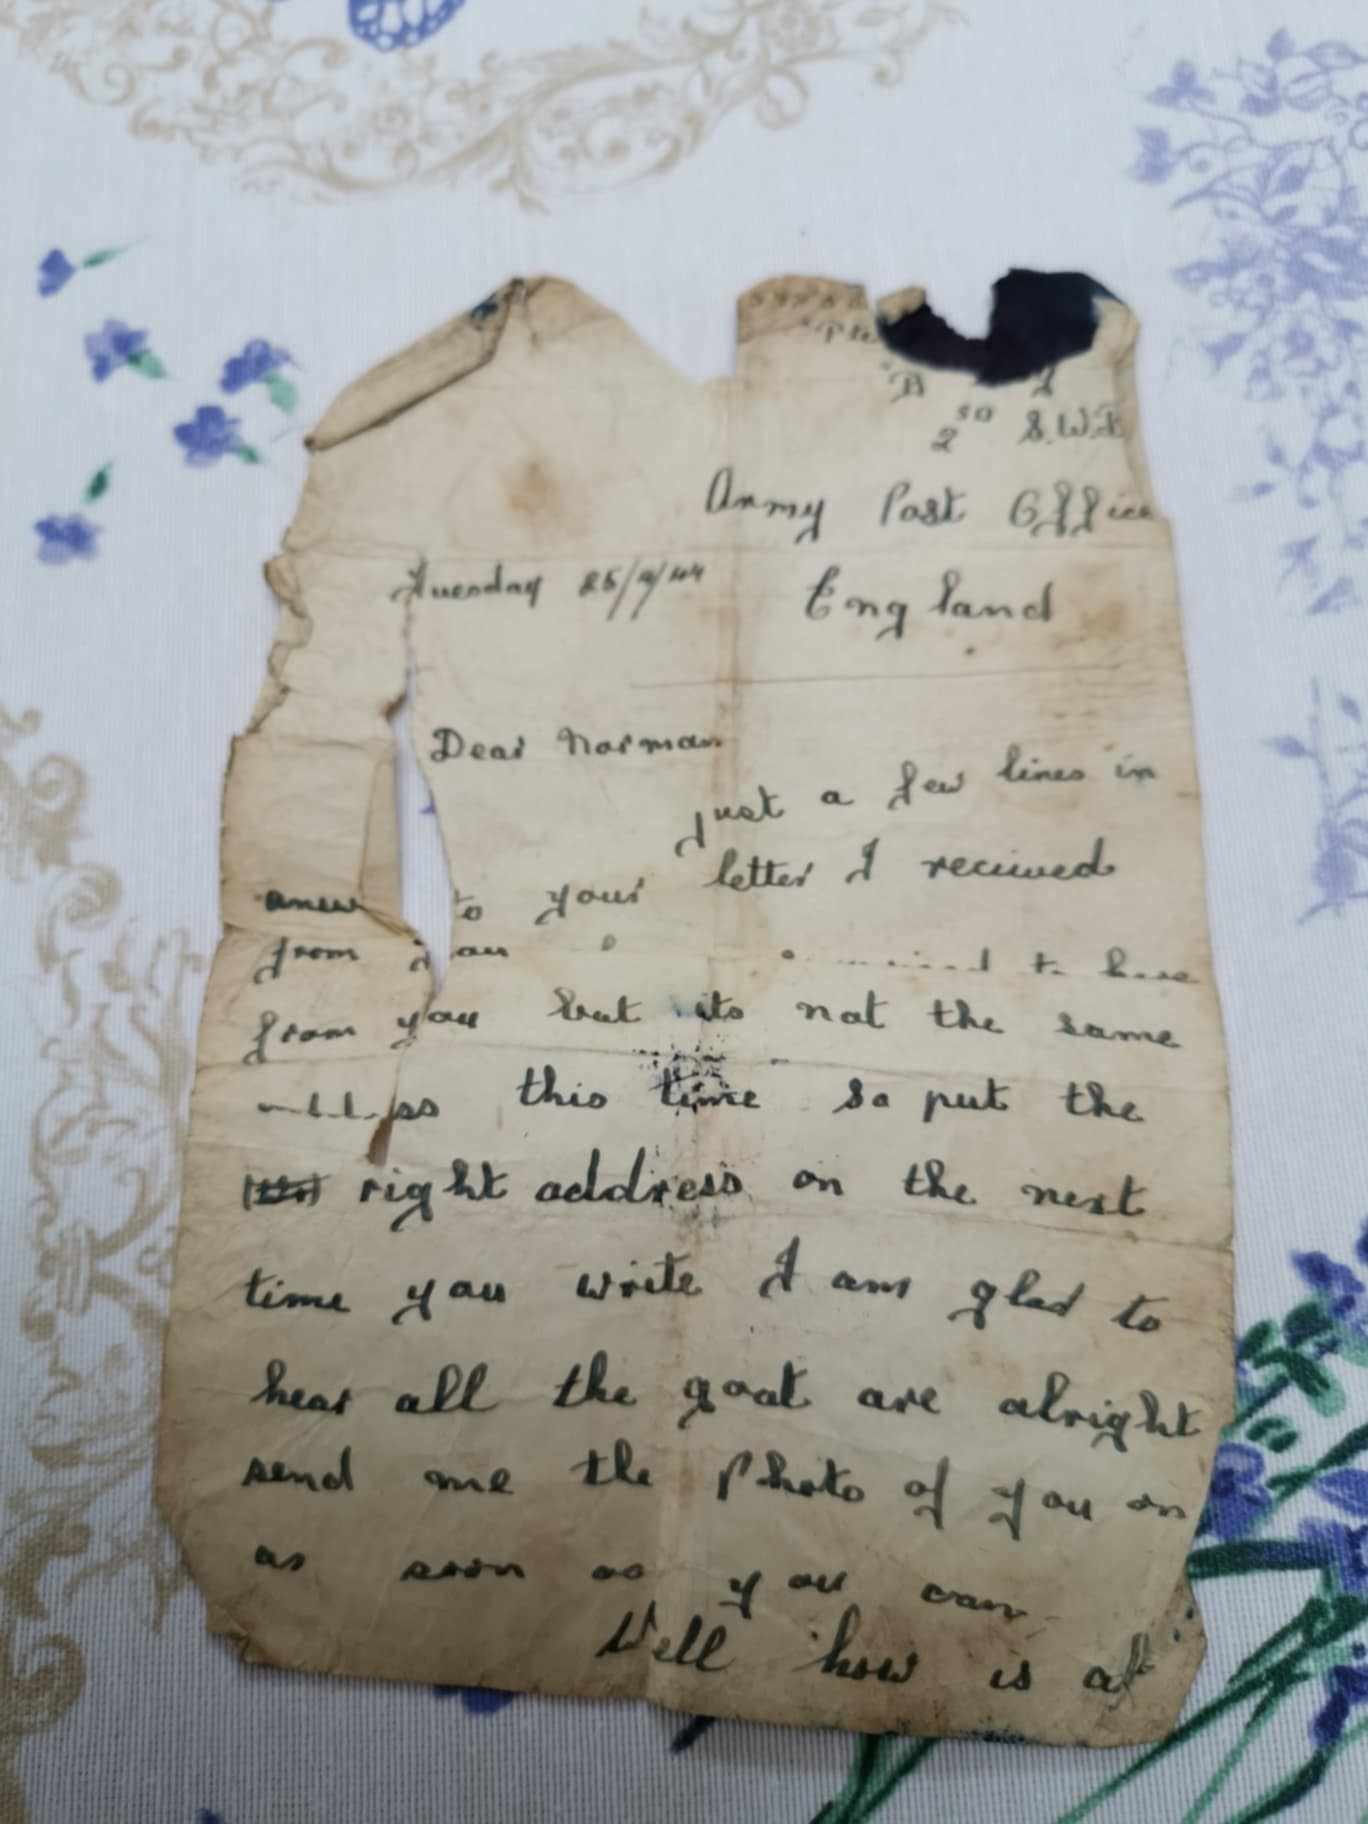 Pte
"B
2 S.W.B
Army Post Office
Tuesday 25/4/44 England
Dear Norman
just a few lines in
answ to your letter I received
from you to hear
from you but its not the same
ss this time so put the
right address on the next
time you write I am glad to
hear all the goat are alright
send me the Photo of you on
as soon as you can
Well how is